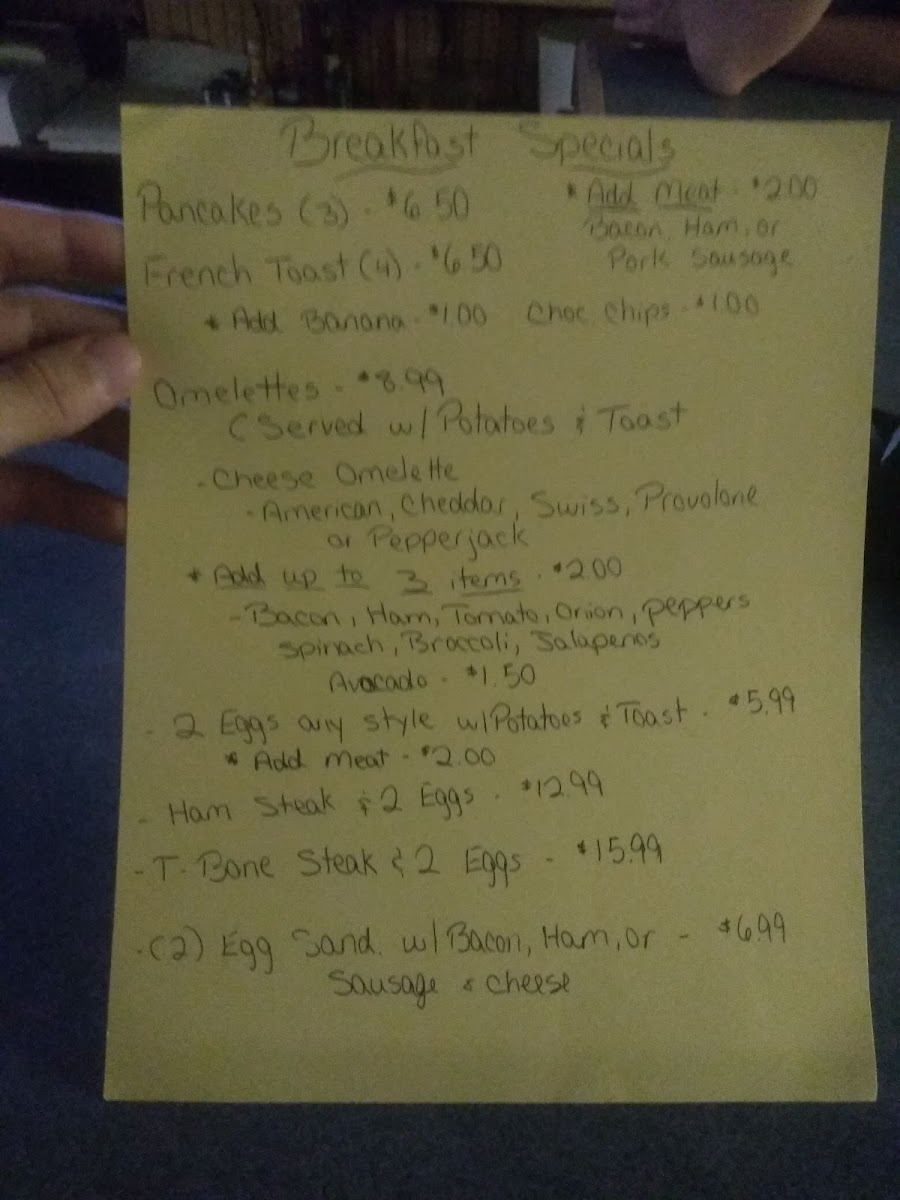 Breakfast Specials
Pancakes (3) - $6.50
* Add Meat - $2.00
Bacon, Ham, or
Pork Sausage
French Toast (4) - $6.50
* Add Banana - $1.00 Choc. Chips - $1.00
Omelettes - $8.99
(Served w/ Potatoes & Toast
- Cheese Omelette
- American, Cheddar, Swiss, Provolone
or Pepperjack
* Add up to 3 items - $2.00
- Bacon, Ham, Tomato, Onion, peppers
spinach, Broccoli, Jalapenos
Avocado - $1.50
- 2 Eggs any style w/ Potatoes & Toast - $5.99
* Add Meat - $2.00
- Ham Steak & 2 Eggs - $12.99
- T-Bone Steak & 2 Eggs - $15.99
- (2) Egg Sand. w/ Bacon, Ham, or - $6.99
Sausage & cheese